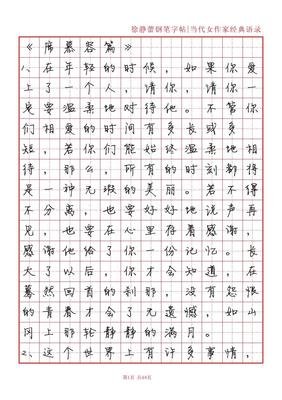 徐静蕾钢笔字帖|当代女作家经典语录
《席慕容篇》
1、在年轻的时候，如果你爱
上了一个人，请你，请你一
定要温柔地对待他。不管你
们相爱的时间有多长或多
短，若你们能始终温柔地相
待，那么，所有的时刻都将
是一种无瑕的美丽。若不得
不分离，也要好好地说声再
见，也要在心里存着感谢，
感谢他给了你一份记忆。长
大了以后，你才会知道，在
蓦然回首的刹那，没有怨恨
的青春才会了无遗憾，如山
冈上那轮静静的满月。
2、这个世界上有许多事情，